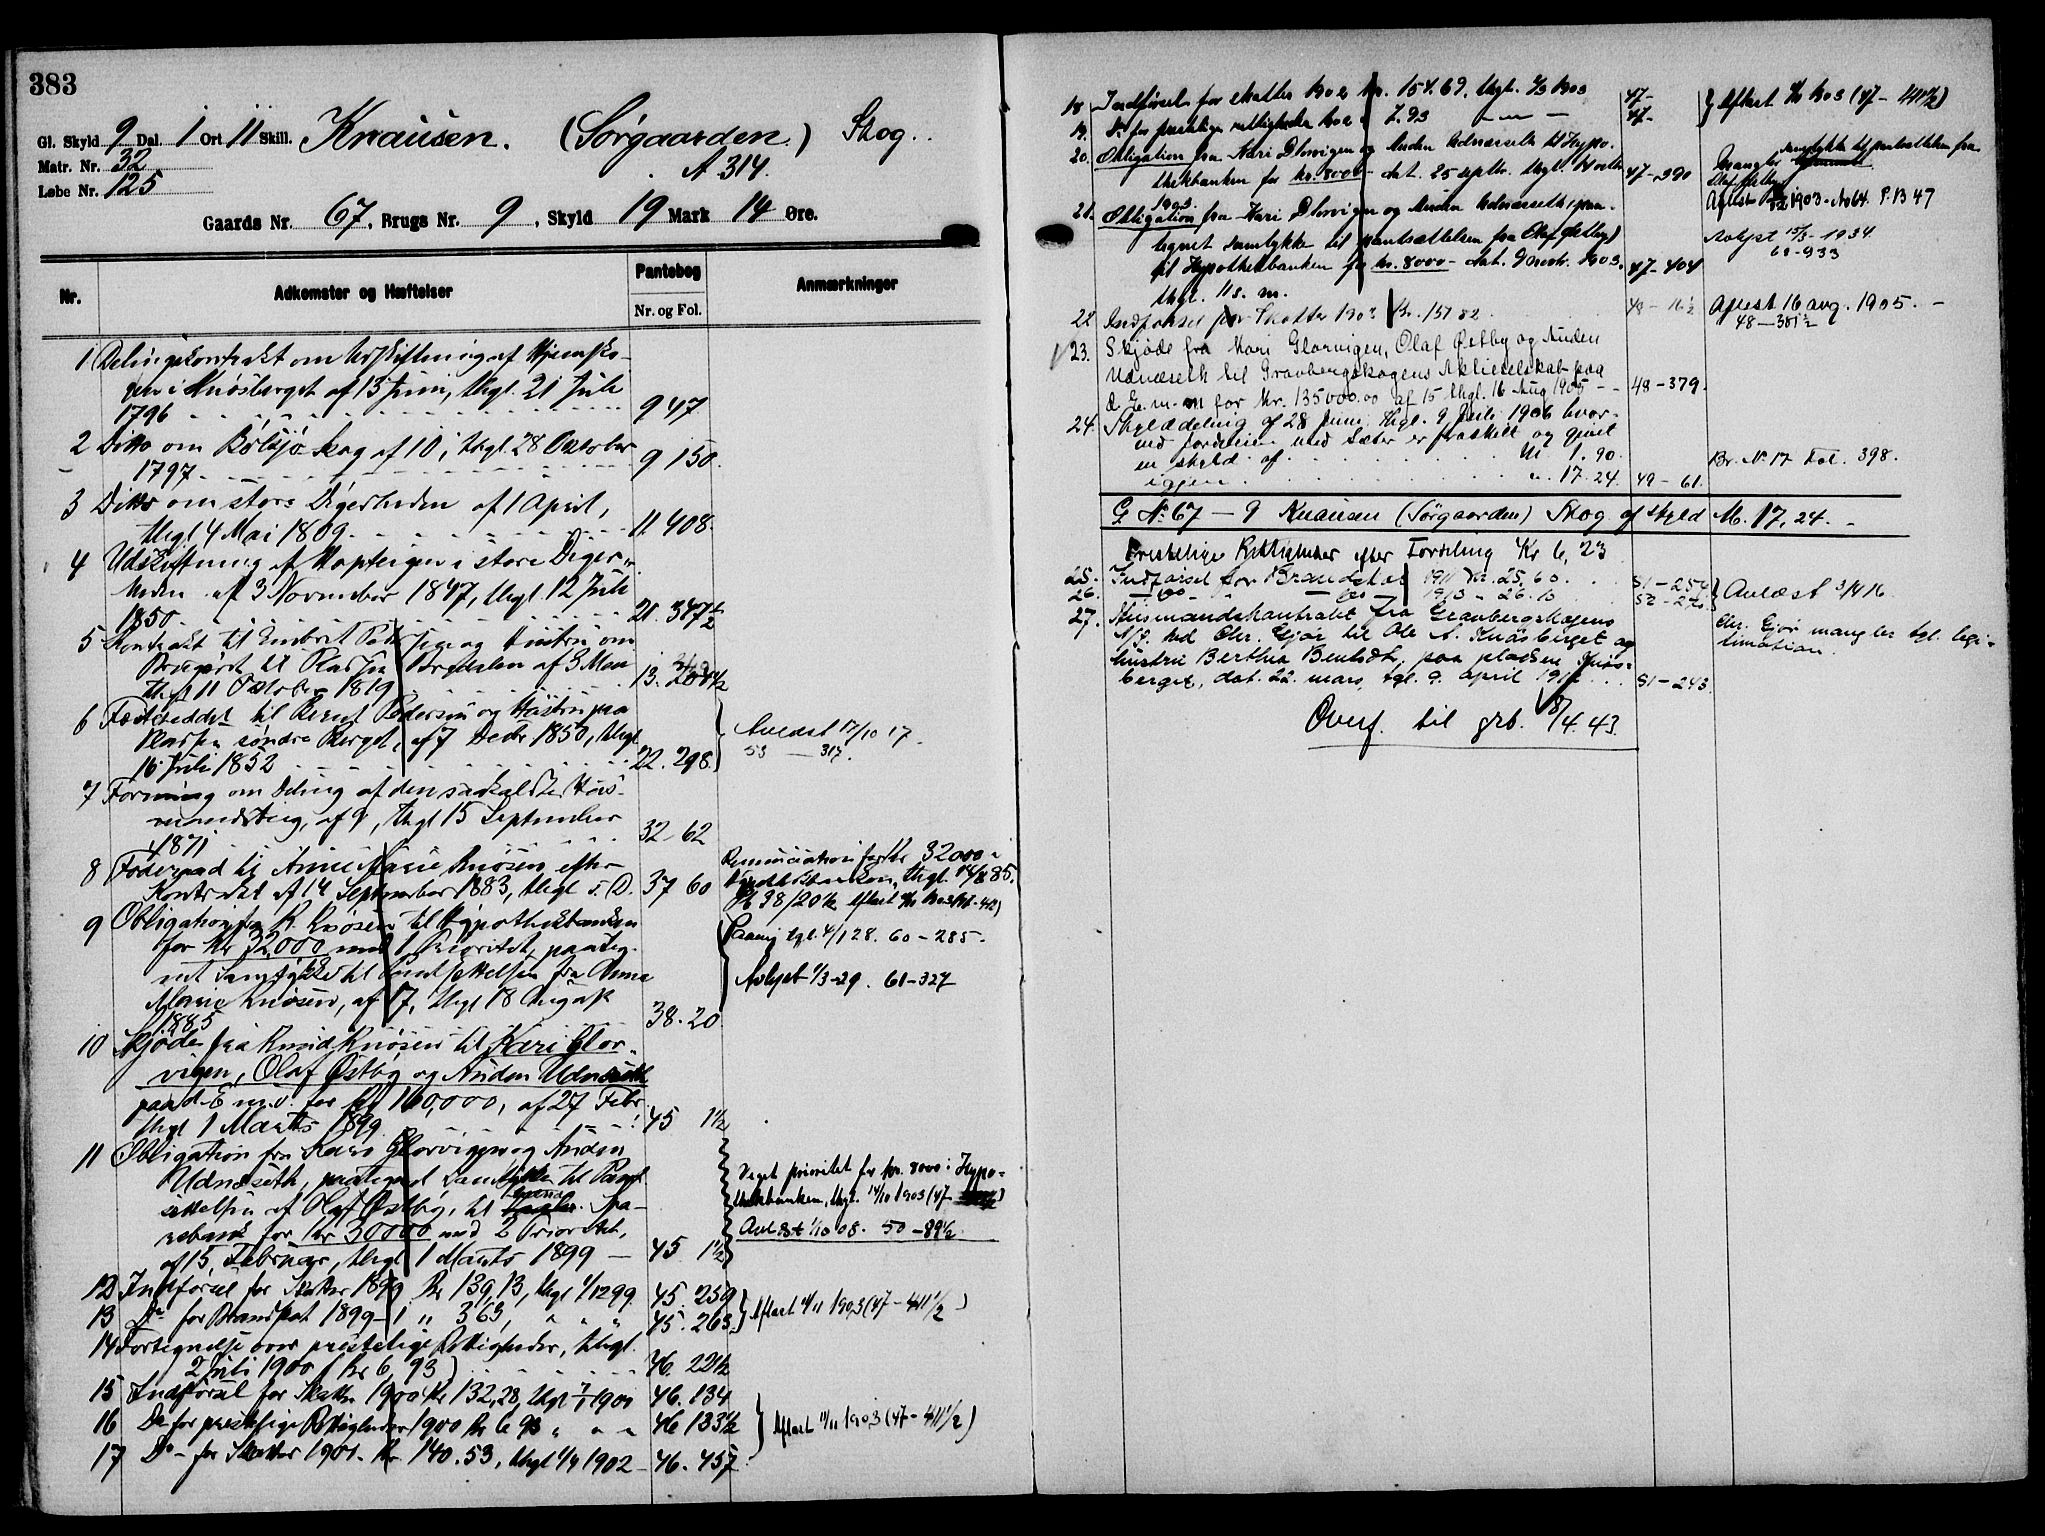 383
Gl. Skyld 9 Dal. 1 Ort 11 Skill. Knausen. (Sørgaarden.) Skog.
Matr. Nr. 32
A 314.
Løbe Nr. 125
Gaards Nr. 67, Brugs Nr. 9, Skyld 19 Mark 14 Øre.
Nr. Adkomster og Hæftelser Pantebog Anmærkninger
Nr. og Fol.
1 Delingskontrakt om Udskiftning af Hjemsko-
gen i Knøsberget af 13 Juni, thgl. 21 Juli
1796 9 47
2 Ditto om Bølsjø Skog af 10, thgl. 28 Oktober
1797 9 150.
3 Ditto om store Digerheden af 1 April,
thgl 4 Mai 1809. 11 408.
4 Udskiftning af Havnegen i store Diger-
heden af 3 November 1847, thgl. 12 Juli
1850 21. 347½
5 Kontrakt til Embret Pedersen og Hustru om
Brugsret til Pladsen Brydalen af 3 Mai
thgl 11 Oktober 1819 13. 204½
6 Fæsteseddel til Bernt Pedersen og Hustru paa
Pladsen søndre Berget, af 7 Decbr 1850, thgl.
16 Juli 1852 22. 298. Avlæst 17/10 17.
53 — 317.
7 Forening om Deling af den saakaldte Hus-
mandsteig, af 9, thgl 15 September
1871 32. 62
8 Føderaad til Anne Marie Knøsen efter
Kontrakt af 14 September 1883, thgl s. D. 37 60
Renunciation for Kr 32000
Hypothekbanken, thgl. 18/8 85.
Pb 38/20½ Aflæst 4/11 1903 (47-411)
9 Obligation fra K. Knøsen til Hypothekbanken
for Kr 32000 med 1 Prioritet, paateg-
net Samtykke til Pantsettelsen fra Anne
Marie Knøsen, af 17, thgl 18 August
1885 38. 20.
Paateg tgl. 4/1 28. 60 – 285.
Avlyst 1/3-29. 61–327
10 Skjøde fra Knud Knøsen til Kari Glor-
vigen, Olaf Østby og Anden Udnæseth
paa d. E. m. v. for Kr 160,000, af 27 Febr.
thgl 1 Marts 1899. 45 1½
11 Obligation fra Kari Glorvigen og Anden
Udnæseth, paategnet Samtykke til Pant-
settelsen af Olaf Østby, til Spa-
rebank for Kr 30000 med 2 Prioritet,
af 15, Februar, thgl 1 Marts 1899 – 45 1½
Veget prioritet for kr. 8000 i Hypo-
thekbanken, thgl. 14/10 1903 (47
Avlæst 1/10 08. 50 – 89½
12 Indførsel for Skatter 1899 Kr 139,13, thgl 1/12 99 45. 259
13 Do for Brandkat 1899 – 1 " 363, " " " 45. 263. Aflæst 4/11 1903 (47 – 411½)
14 Fortegnelse over prestelige Rettigheder, thgl.
2 Juli 1900 (Kr 6,93) 46. 22½
15 Indførsel for Skatter 1900 Kr 132,28, thgl 1900 46. 134
16 Do for prestelige Rettigheder 1900 Kr 6 93 " " " 46 133½ Aflæst 4/11 1903 (47 – 411½)
17 Do – for Skatter 1901. Kr 140.53, thgl 1/4 1902 – 46. 457
18 Indførsel for skatter 1902 kr. 154.69. thgl. 1903 47- Aflæst 4/11 1903 (47 – 411½)
19. Do for prestelige rettigheder 1902. 7.93 — " — 47-
20. Obligation fra Kari Glorvigen og Anden Udnæseth til Hypo-
thekbanken for kr. 8000 – dat. 25 septbr. thgl.
1903. 47-390
Mangler samtykke til pantsættelsen fra
Olaf Østby
Aflæst 1903 – No 64. P.B 47
21. Obligation fra Kari Glorvigen og Anden Udnæseth (paa-
tegnet samtykke til pantsættelsen fra Olaf Østby)
til Hypothekbanken for kr. 8000 – dat. 9 novbr. 1903.
thgl. 11 s. m. 47-404
Avlyst 15/3-1934.
62-933
22 Indførsel for Skatter 1903 Kr. 151 82 48 – 16½ Aflæst 16 aug. 1905. –
48 – 381½
23. Skjøde fra Kari Glorvigen, Olaf Østby og Anden
Udnæseth til Gravbergskogens Aktieselskab paa
d. E. m. m for Kr. 135000.00 af 15 thgl. 16 Aug 1905 – – 48 – 379.
24. Skylddeling af 28 Juni thgl. 9 Juli 1906 hvor-
ved Jordveien med Sæter er fraskilt og givet
en skyld af M 1.90. Br. No 17 Fol. 398.
igjen " 17.24. 49 – 61.
G No 67 – 9 Knausen (Sørgaarden) Skog af skyld M. 17,24. –
Prestelige Rettigheder efter Fordeling Kr 6,23
25. Indførsel for Brandskat 1911 Kr. 25,60. 51 – 254 Avlæst 3/4 16
26. — do — — do — 1913 – 26.10 52 – 270
27. Husmandskontrakt fra Gravbergskogens
A/S. ved Chr. Gjør til Ole A. Knøsberget og
hustru Berthea Bentsdtr, paa pladsen Knøs-
berget, dat. 22. mars, tgl. 9. april 1912 51 – 243.
Chr. Gjør mangler tgl. legi-
timation.
Overf. til grb. 8/4.43.